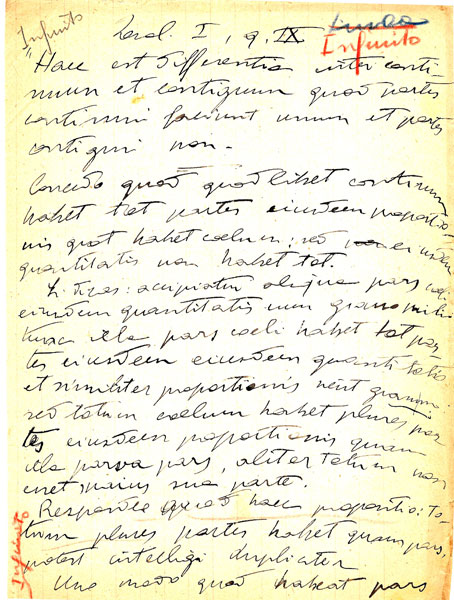 Infinito
Quodl. I, q. IX
Infinito
Haec est differentia inter conti-
nuum et contiguum quod partes
continui faciunt unum et partes
contigui non.
Concedo quod quodlibet continuum
habet tot partes eiusdem proportio-
nis quot habet coelum; sed non eiusdem
quantitatis non habet tot.
accipiatur aliqua pars coeli
eiusdem quantitatis cum grano milii
tunc illa pars coeli habet tot par-
tes eiusdem eiusdem quantitatis
et similiter proportionis sicut granum
sed totum coelum habet plures par-
tes eiusdem proportionis quam
illa parva pars, aliter totum non
esset maius sua parte.
Respondeo quod haec propositio: to-
tum plures partes habet quam pars,
potest intelligi dupliciter
Uno modo quod habeat pars
Infinito